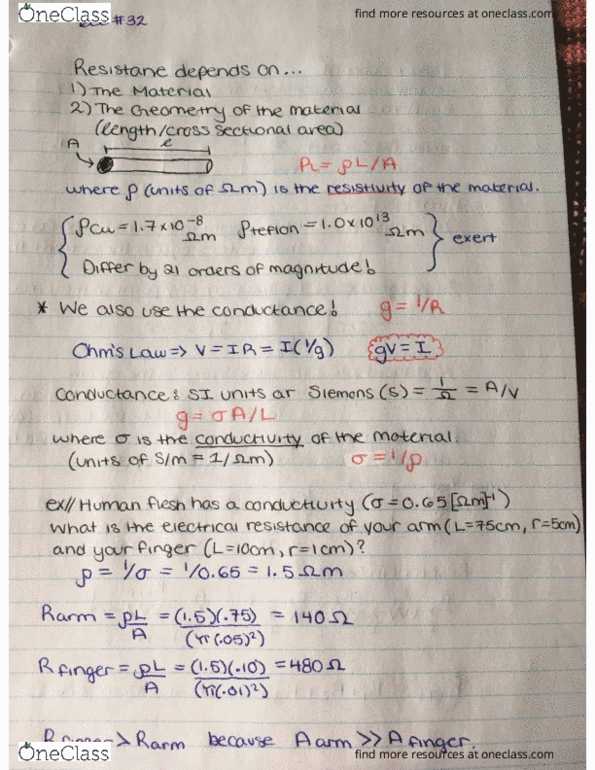 OneClass
find more resources at oneclass.com
#32
Resistane depends on...
1) The Material
2) The Geometry of the material
(length/cross sectional area)
A
ℓ
R = ρL/A
where ρ (units of Ωm) is the resistivity of the material.
ρcu = 1.7 x 10⁻⁸ Ωm ρteflon = 1.0 x 10¹³ Ωm
exert
Differ by 21 orders of magnitude!
* We also use the conductance! g = 1/R
Ohm's Law => V = IR = I(1/g) gV = I
Conductance: SI units ar Siemons (S) = 1/Ω = A/V
g = σA/L
where σ is the conductivity of the material.
(units of S/m = 1/Ωm) σ = 1/ρ
ex// Human flesh has a conductivity (σ = 0.65 [Ωm]⁻¹)
What is the electrical resistance of your arm (L=75cm, r=5cm)
and your finger (L=10cm, r=1cm)?
ρ = 1/σ = 1/0.65 = 1.5 Ωm
Rarm = ρL/A = (1.5)(.75)/(π(.05)²) = 140 Ω
Rfinger = ρL/A = (1.5)(.10)/(π(.01)²) = 480 Ω
Rfinger > Rarm because Aarm >> Afinger.
OneClass
find more resources at oneclass.com